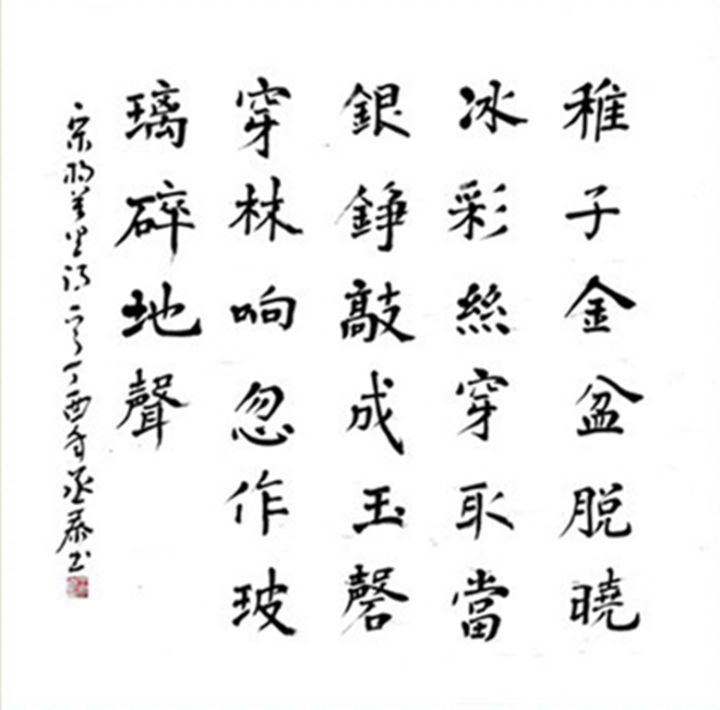 稚子金盆脱曉
冰彩絲穿取當
銀錚敲成玉磬
穿林响忽作玻
璃碎地聲
宋杨萬里诗一首丁酉年丞书